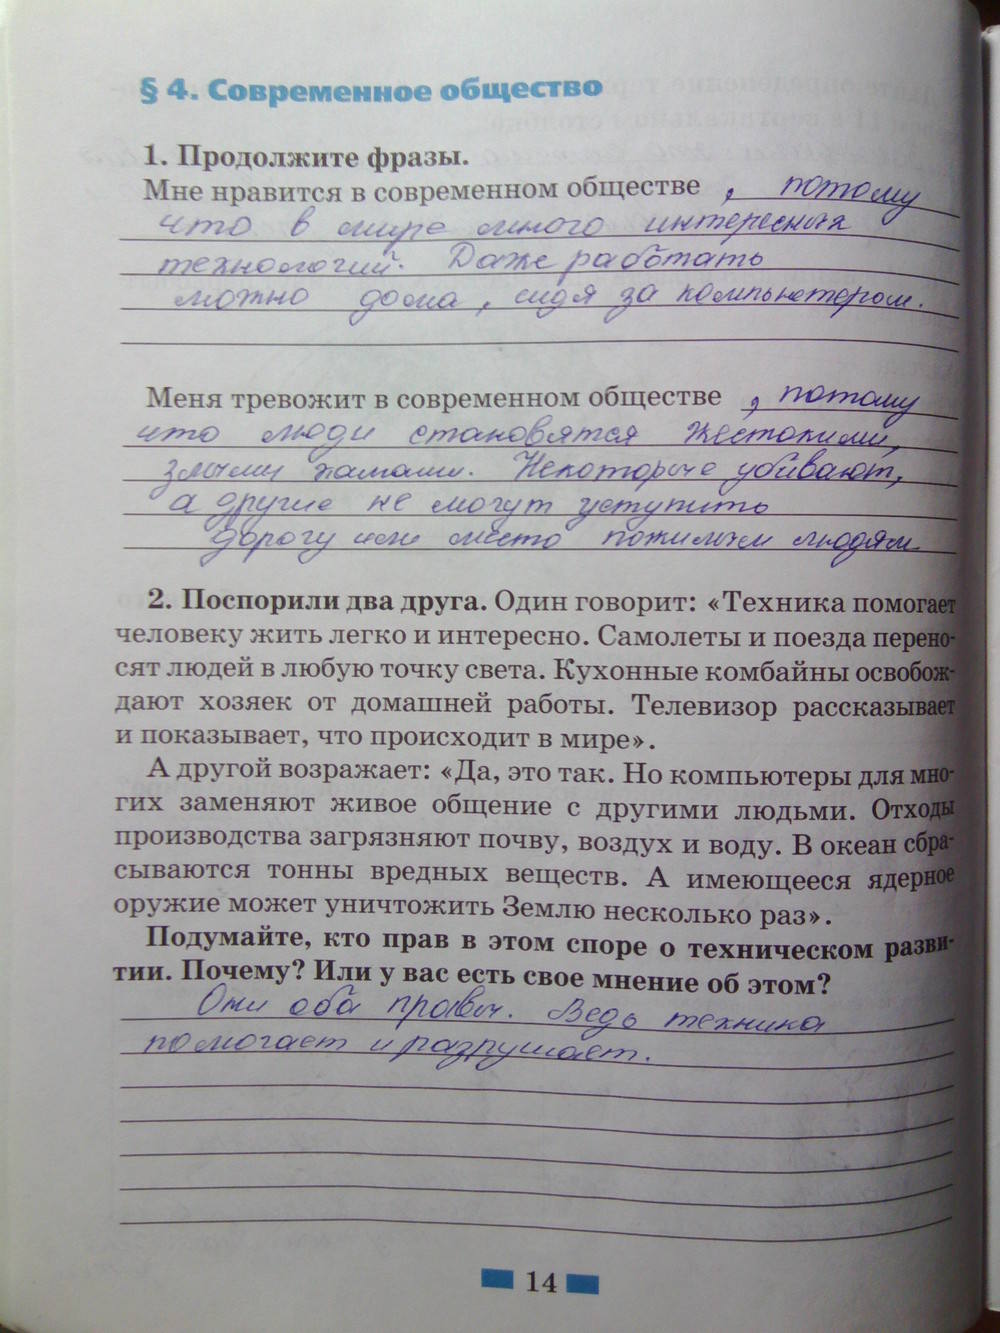 § 4. Современное общество
1. Продолжите фразы.
Мне нравится в современном обществе , потому
что в мире много интересных
технологий. Даже работать
можно дома, сидя за компьютером.
Меня тревожит в современном обществе , потому
что люди становятся жестокими,
злыми хамами. Некоторые убивают,
а другие не могут уступить
дорогу или место пожилым людям
2. Поспорили два друга. Один говорит: «Техника помогает
человеку жить легко и интересно. Самолеты и поезда перено-
сят людей в любую точку света. Кухонные комбайны освобож-
дают хозяек от домашней работы. Телевизор рассказывает
и показывает, что происходит в мире».
А другой возражает: «Да, это так. Но компьютеры для мно-
гих заменяют живое общение с другими людьми. Отходы
производства загрязняют почву, воздух и воду. В океан сбра-
сываются тонны вредных веществ. А имеющееся ядерное
оружие может уничтожить Землю несколько раз».
Подумайте, кто прав в этом споре о техническом разви-
тии. Почему? Или у вас есть свое мнение об этом?
Они оба правы. Ведь техника
помогает и разрушает.
14